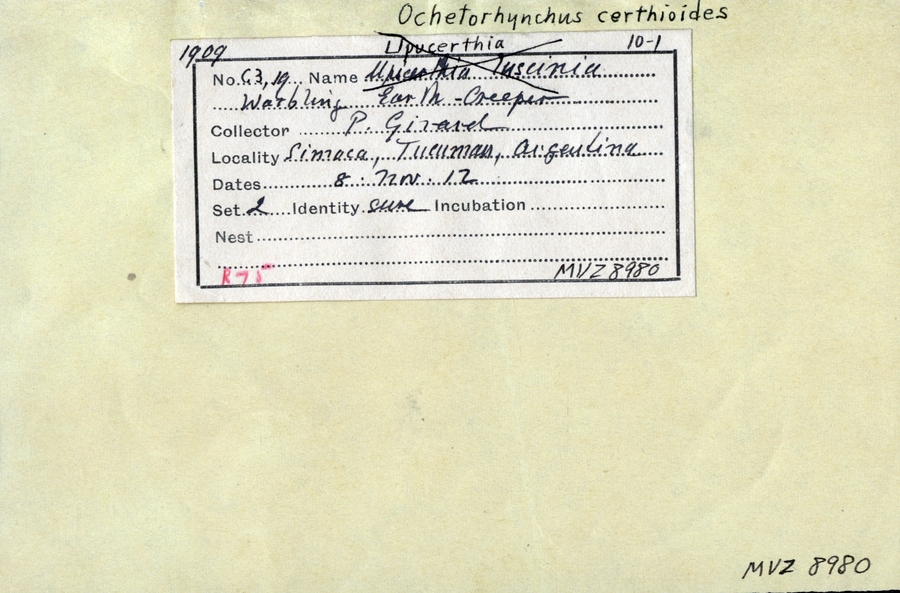 Ochetorhynchus certhioides
1909 Upucerthia 10-1
No. 63,19 Name Upicerthia luscinia
Warbling Earth-Creeper
Collector P. Girard
Locality Simoca, Tucuman, Argentina
Dates 8. Nov. 12
Set 2 Identity sure Incubation
Nest
R75 MVZ 8980
MVZ 8980